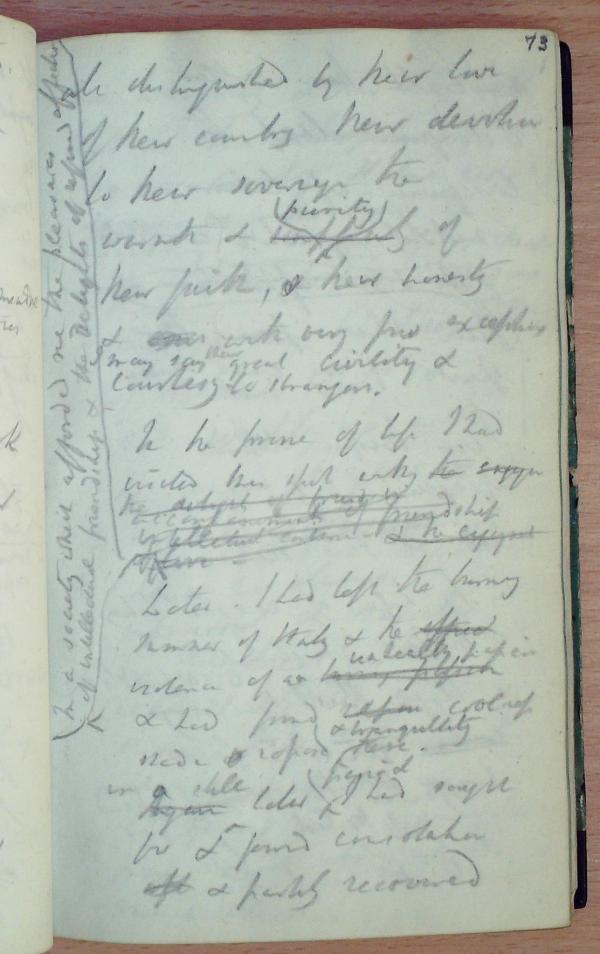 73
distinguished by their love
of their country their devotion
to their sovereign the
warmth & purity of
their faith, & their honesty
& with very few exceptions
may say their great civility &
Courtesy to strangers.
In the prime of life I had
visited this spot
in a society which afforded me the pleasures
of intellectual friendship & the delights of refined
the delight of
accompaniments of friendship
intellectual & the
Later. I had left the burning
summer of Italy & the
violence of an unhealthy passion
& had found cool
shade & repose & tranquillity
here.
in a still
Again later period I had sought
for & found consolation
& partly recovered